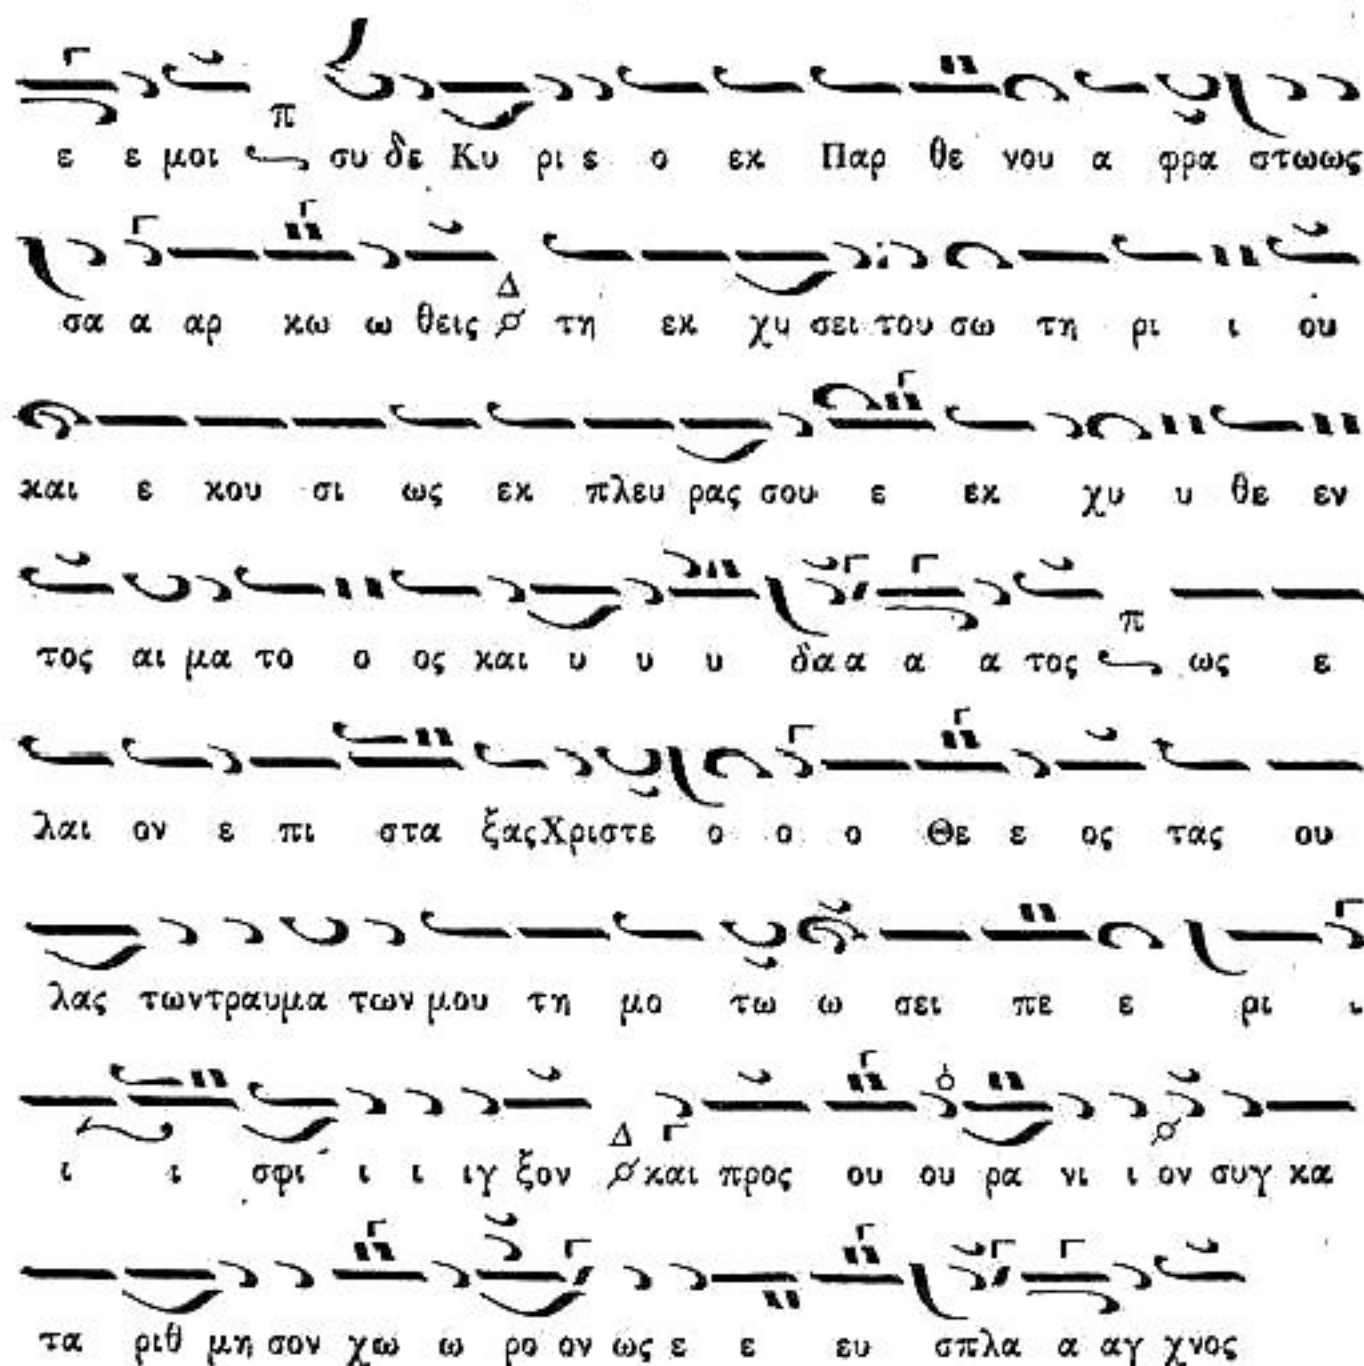 ε ε μοι π συ δε Κυ ρι ε ο εκ Παρ θε νου α φρα στωως
σα α αρ κω ω θεις Δ τη εκ χυ σει του σω τη ρι ι ου
και ε κου σι ως εκ πλευ ρας σου ε εκ χυ υ θε εν
τος αι μα το ο ος και υ υ υ δαα α α τος π ως ε
λαι ον ε πι στα ξας Χριστε ο ο ο Θε ε ος τας ου
λας των τραυμα των μου τη μο τω ω σει πε ε ρι ι
ι ι σφι ι ι ιγ ξον Δ και προς ου ου ρα νι ι ον συγ κα
τα ριθ μη σον χω ω ρο ον ως ε ε ευ σπλα α αγ χνος